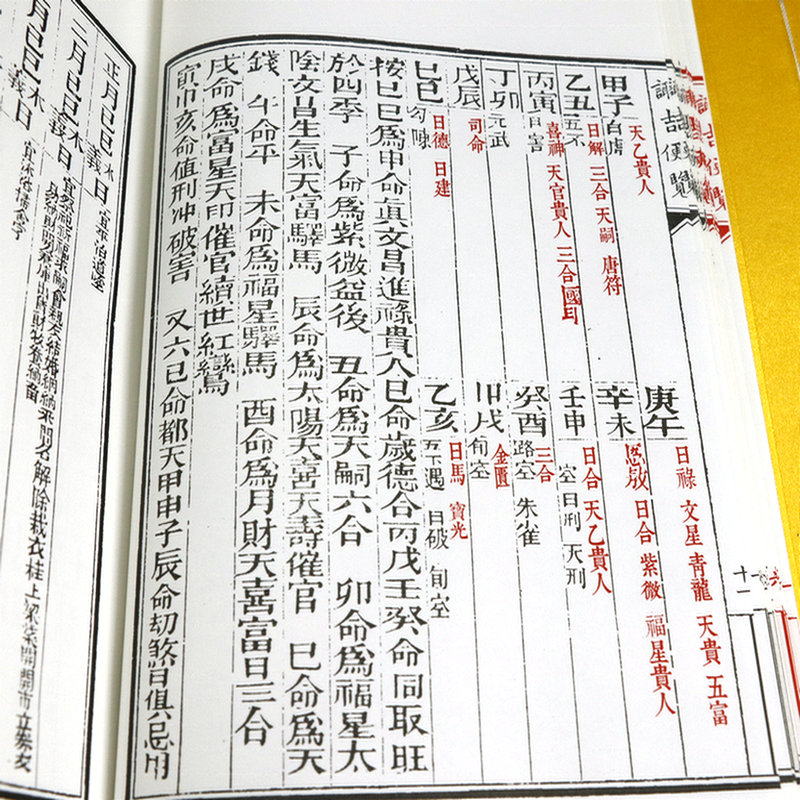 諏喆便覽
甲子 白虎 天乙貴人
乙丑 五不 日解 三合 天嗣 唐符
丙寅 日害 喜神 天官貴人 三合 國印
丁卯 元武
戊辰 司命
己巳 勾陳 日德 日建
庚午 日祿 文星 青龍 天貴 五富
辛未 日合 紫微 福星貴人
壬申 空 日刑 天刑 日合 天乙貴人
癸酉 路空 朱雀 三合
甲戌 旬空 金匱
乙亥 五不遇 日破 旬空 日馬 寶光
按己巳為甲命眞文昌進祿貴人巳命歲德合丙戊壬癸命同取旺
於四季 子命為紫微益後 丑命為天嗣六合 卯命為福星太
陰文昌生氣天富驛馬 辰命為太陽天喜天壽催官 巳命為天
錢 午命平 未命為福星驛馬 酉命為月財天喜富日三合
戌命為富星天印催官續世紅鸞
寅申亥命值刑冲破害 又六己命都天甲申子辰命劫煞皆俱忌用
十一
正月己巳木義日 宜平治道塗
二月己巳木義日
月己巳木義日